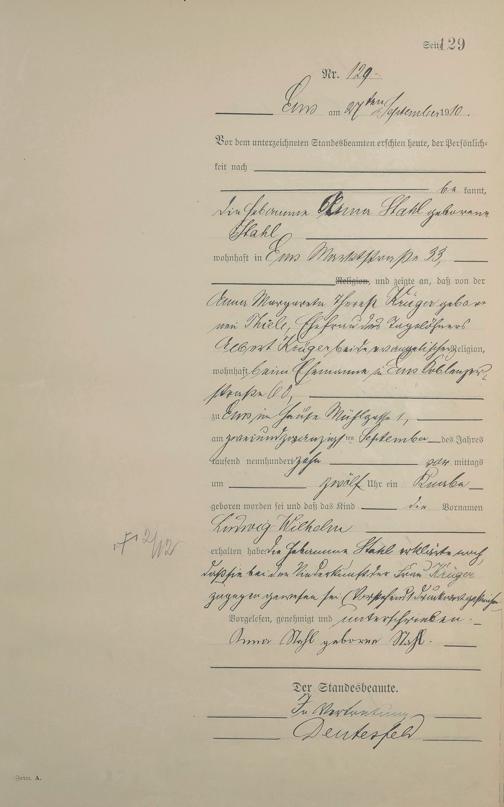 Seite 129
Nr. 129.
Ems am 27ten September 1910.
Vor dem unterzeichneten Standesbeamten erschien heute, der Persönlich-
keit nach
be kannt,
die Hebamme Anna Stahl geborene
Stahl
wohnhaft in Ems Marktstraße 33,
Religion, und zeigte an, daß von der
Anna Margareta Therese Krüger gebor-
nen Thiele, Ehefrau des Tagelöhners
Albert Krüger beide evangelischer Religion,
wohnhaft beim Ehemanne in Ems Coblenzer-
straße
zu Ems, im Hause Mühlgasse 1,
am zweiundzwanzigsten September des Jahres
tausend neunhundert zehn vor mittags
um zwölf Uhr ein Knabe
geboren worden sei und daß das Kind die Vornamen
Ludwig Wilhelm
erhalten habe. Die Hebamme Stahl erklärte noch,
daß sie bei der Niederkunft der Frau Krüger
zugegen gewesen sei (Vorstehend 1 Druckwort gestrichen
Vorgelesen, genehmigt und unterschrieben.
Anna Stahl geborene Stahl.
Der Standesbeamte.
In Vertretung
Dentesfeld
Form. A.